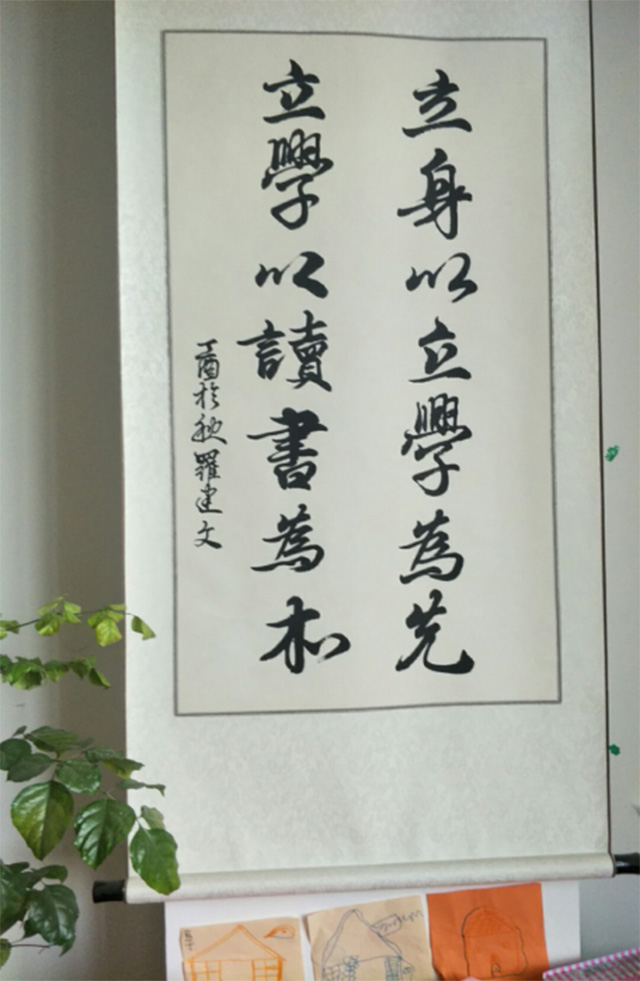 立身以立學為先
立學以讀書為本
丁酉於秋羅建文